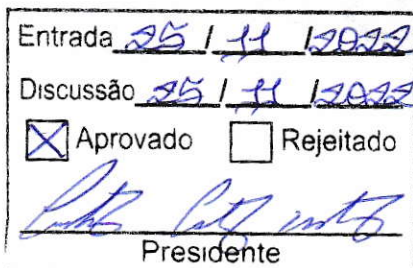 Entrada 25 / 11 / 2022
Discussão 25 / 11 / 2022
☒ Aprovado ☐ Rejeitado
Presidente